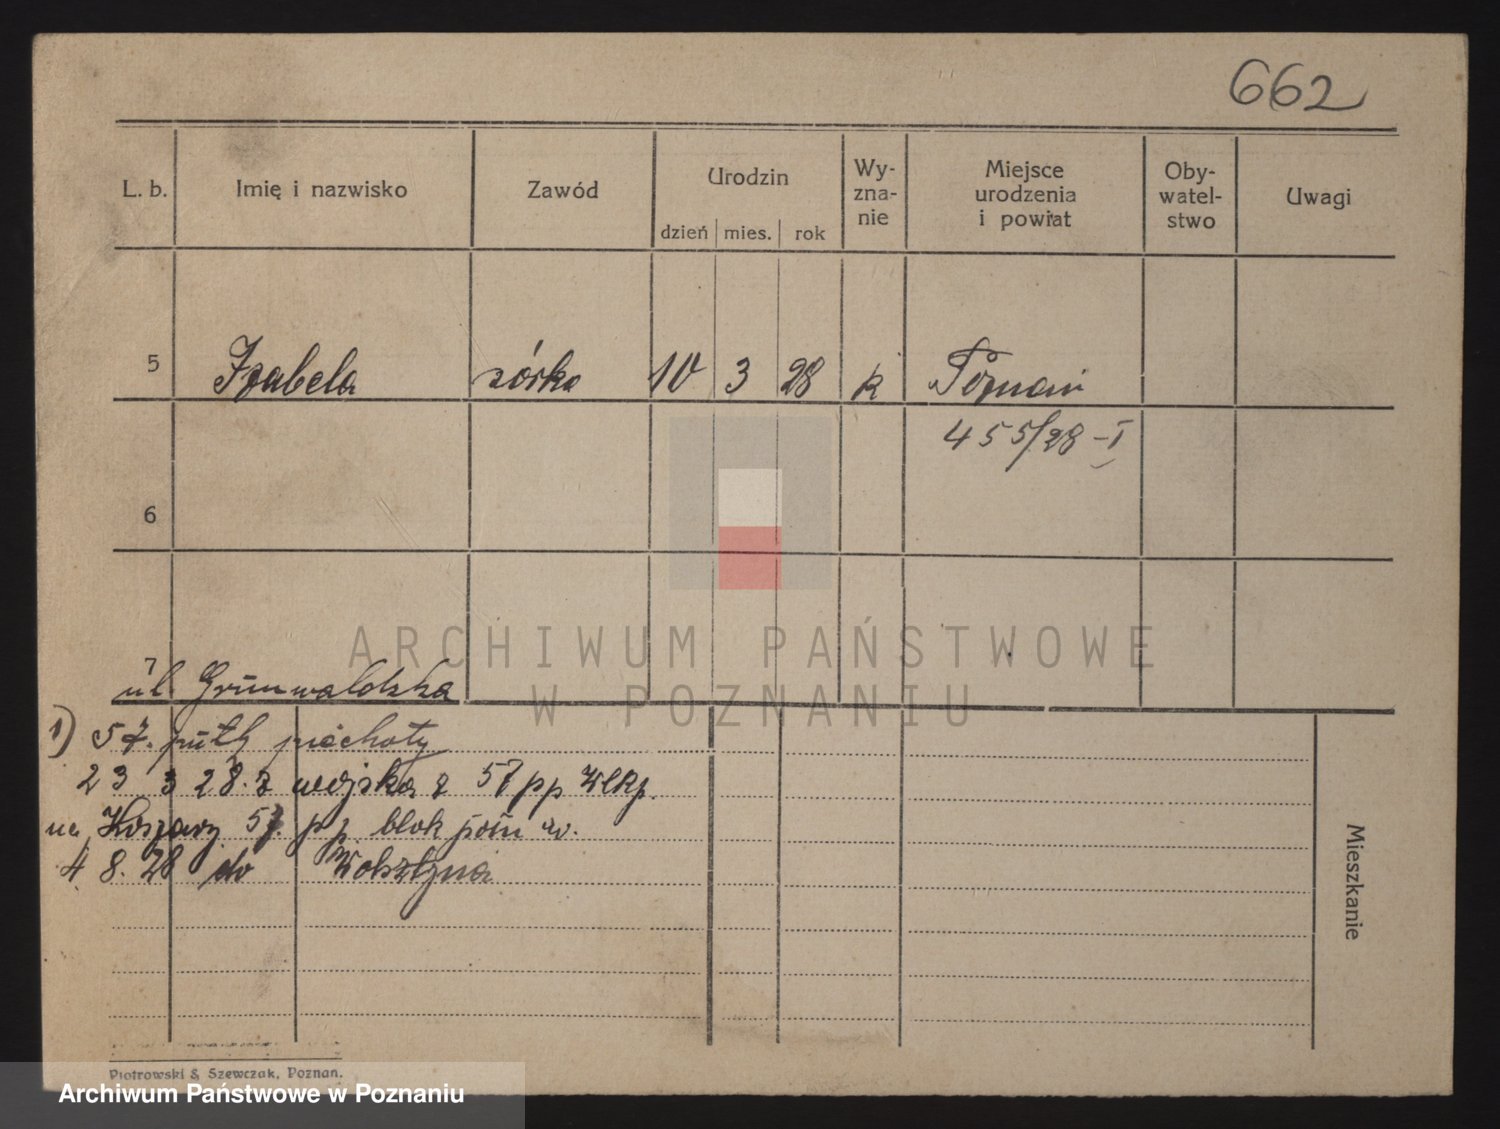 662
L. b. Imię i nazwisko Zawód Urodzin Wy-zna-nie Miejsce urodzenia i powiat Oby-watel-stwo Uwagi
dzień mies. rok
5 Izabela córka 10 3 28 k Poznań
455/28-I
6
7
ul Grunwaldzka
1) 57. pułk piechoty
23 3 28. z wojska z 57 pp Wlkp.
na Koszary 57. pp blok
4 8. 28 do Wolsztyna
Mieszkanie
Piotrowski & Szewczak, Poznan.
ARCHIWUM PAŃSTWOWE
W POZNANIU
Archiwum Państwowe w Poznaniu